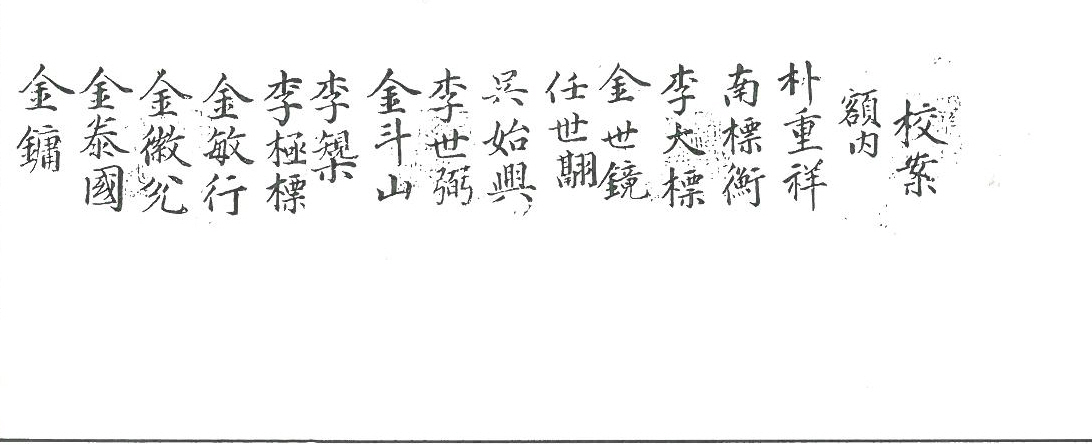 校案
額内
朴重祥
南標衡
李大標
金世鏡
任世翾
吳始興
李世弼
金斗山
李榘
李極標
金敏行
金徽
金泰國
金鏞